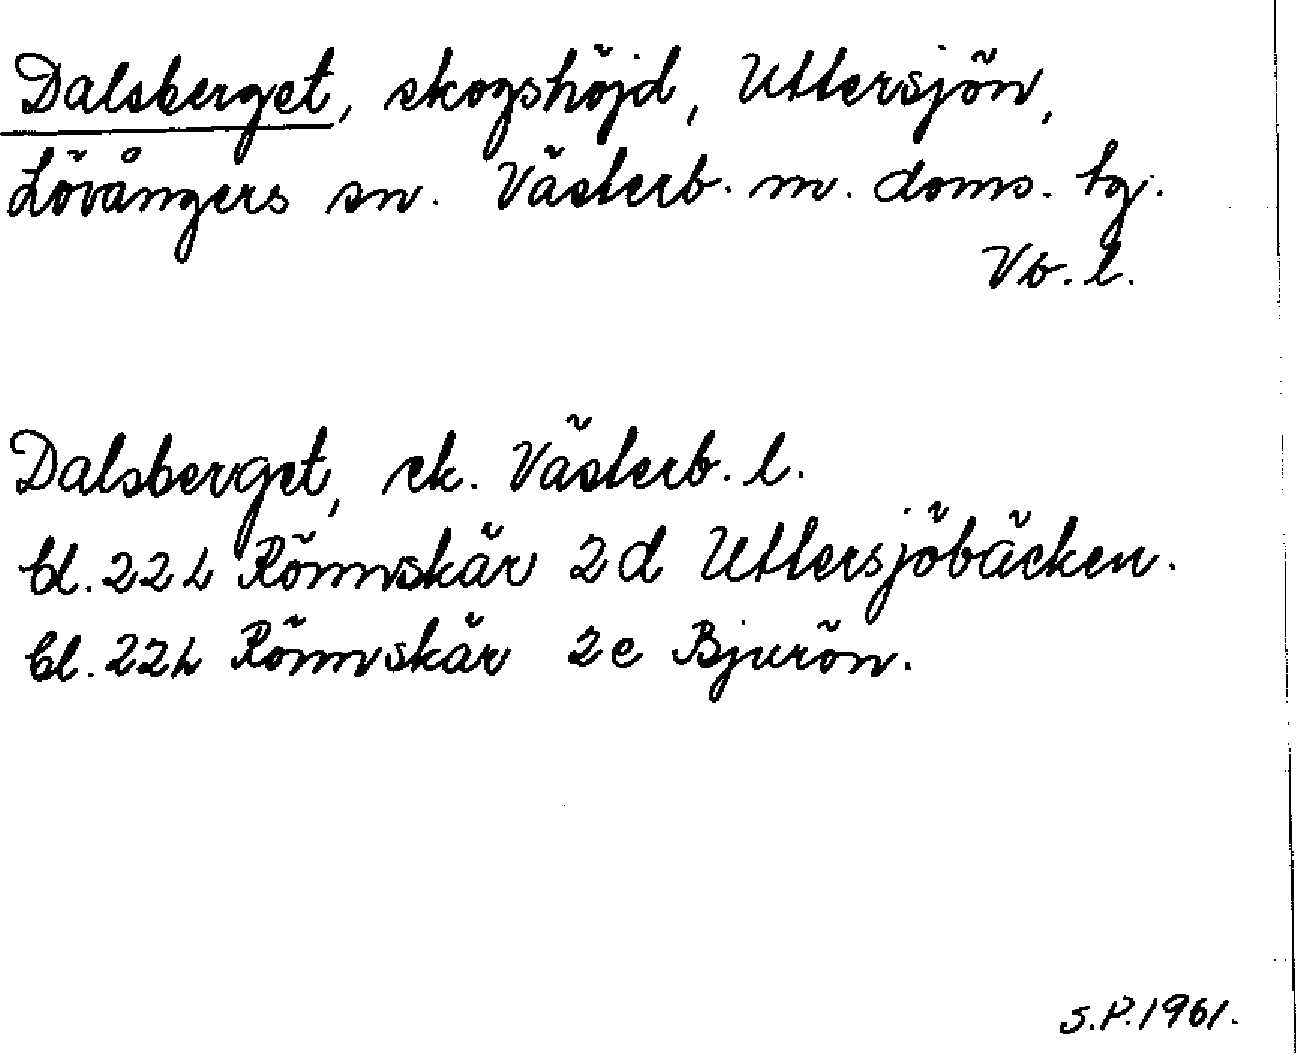 Dalsberget, skogshöjd, Uttersjön,
Lövångers sn. Västerb. m. doms. tg.
Vb. l.
Dalsberget, ek. Västerb. l.
bl. 22L Rönnskär 2d Uttersjöbäcken.
bl. 22L Rönnskär 2e Bjurön.
S.P. 1961.